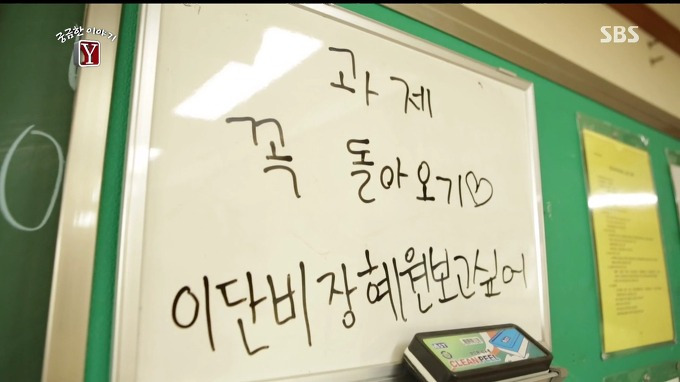 궁금한 이야기
Y
SBS
과제
꼭 돌아오기♡
이단비 장혜원보고싶어
CLEAN PEEL